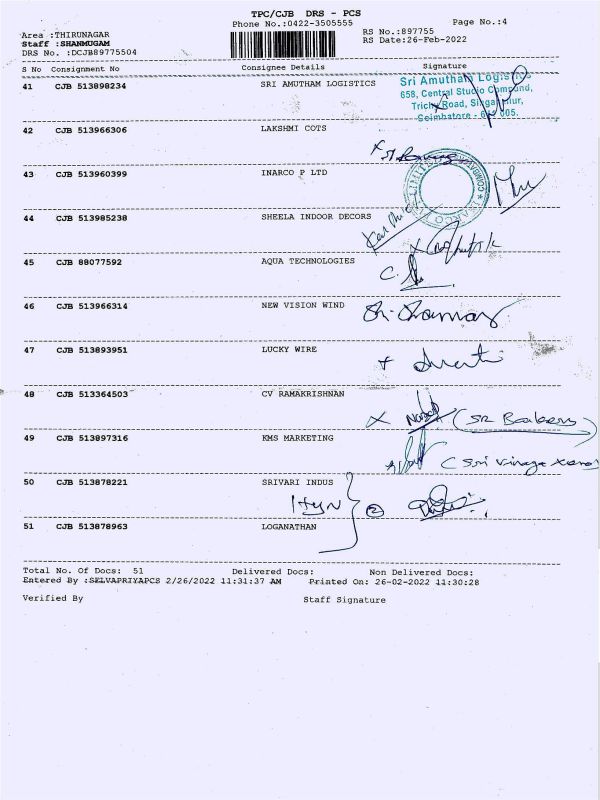 TPC/CJB DRS - PCS
Phone No.:0422-3505555 Page No.:4
Area :THIRUNAGAR RS No.:897755
Staff :SHANMUGAM RS Date:26-Feb-2022
DRS No. :DCJB89775504
S No Consignment No Consignee Details Signature
41 CJB 513898234 SRI AMUTHAM LOGISTICS
Sri Amutham Logistics
658, Central Studio Compound,
Trichy Road, Singanallur,
Coimbatore - 641 005.
42 CJB 513966306 LAKSHMI COTS
43 CJB 513960399 INARCO P LTD
44 CJB 513985238 SHEELA INDOOR DECORS
45 CJB 88077592 AQUA TECHNOLOGIES
46 CJB 513966314 NEW VISION WIND
47 CJB 513893951 LUCKY WIRE
48 CJB 513364503 CV RAMAKRISHNAN
49 CJB 513897316 KMS MARKETING
50 CJB 513878221 SRIVARI INDUS
51 CJB 513878963 LOGANATHAN
Total No. Of Docs: 51 Delivered Docs: Non Delivered Docs:
Entered By :SELVAPRIYAPCS 2/26/2022 11:31:37 AM Printed On: 26-02-2022 11:30:28
Verified By Staff Signature